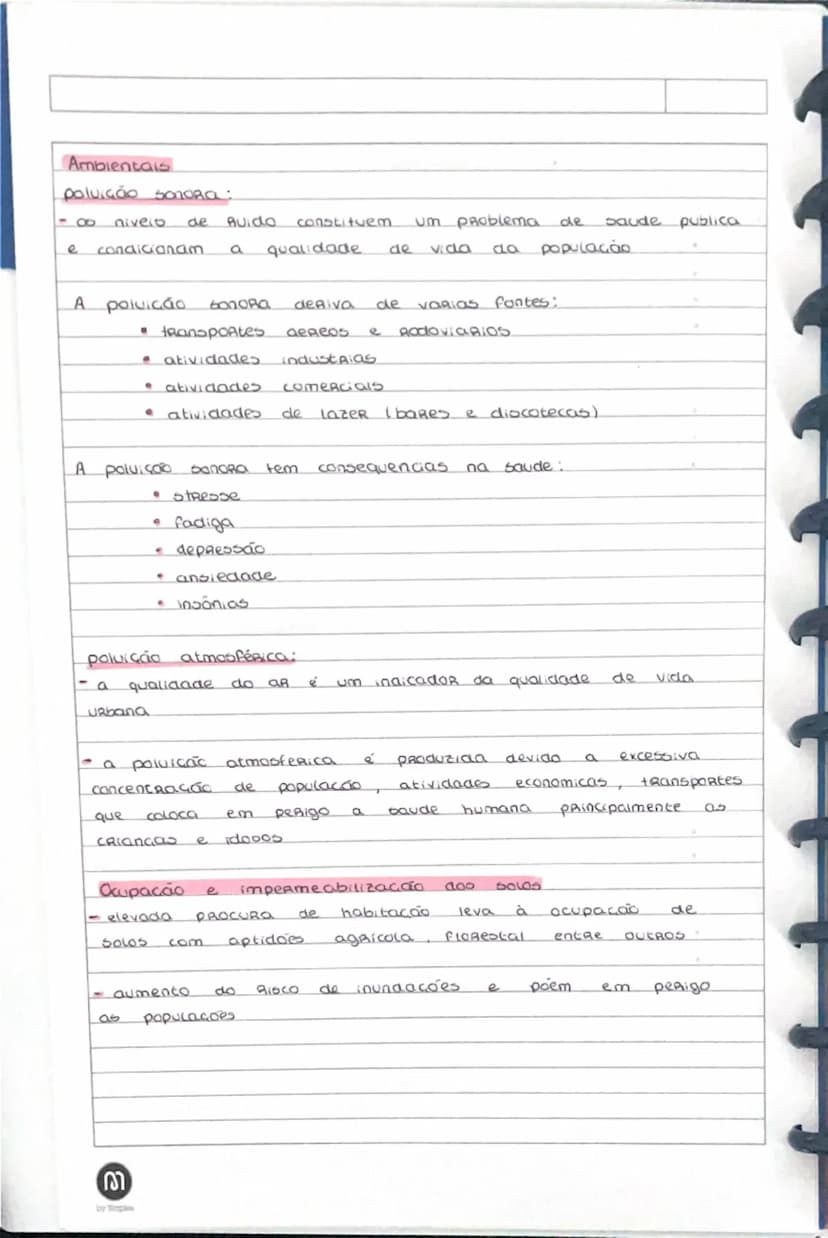 Ambientais
poluição sonora:
- os niveis de ruido constituem um problema de saude publica
e condicionam a qualidade de vida da população
A poluição sonora deriva de varias fontes:
• transportes aereos e rodoviarios
• atividades industrias
• atividades comerciais
• atividades de lazer (bares e discotecas)
A poluição sonora tem consequencias na saude:
• stresse
• fadiga
• depressão
• ansiedade
• insónias
poluição atmosférica:
- a qualidade do ar é um indicador da qualidade de vida
urbana
- a poluição atmosferica é produzida devido a excessiva
concentração de população, atividades economicas, transportes
que coloca em perigo a saude humana principalmente as
crianças e idosos
Ocupação e impermeabilização dos solos
- elevada procura de habitação leva à ocupação de
solos com aptidões agrícola, florestal entre outros
- aumento do risco de inundações e põem em perigo
as populações
by Staples